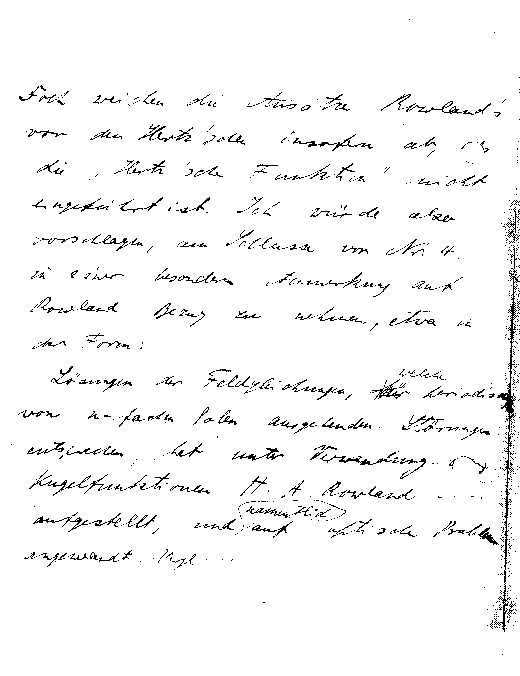 Doch weichen die Ansätze Rowland's
von den Hertz'schen insofern ab, als
die „Hertz'sche Funktion" nicht
eingeführt ist. Ich würde also
vorschlagen, am Schlusse von No 4
in einer besondern Anmerkung auf
Rowland Bezug zu nehmen, etwa in
der Form:
Lösungen der Feldgleichungen, welche periodischen
von n-fachen Polen ausgehenden Störungen
entsprechen, hat unter Verwendung von
Kugelfunktionen H. A. Rowland ....
aufgestellt, und namentlich auf optische Probleme
angewandt. Vgl ...